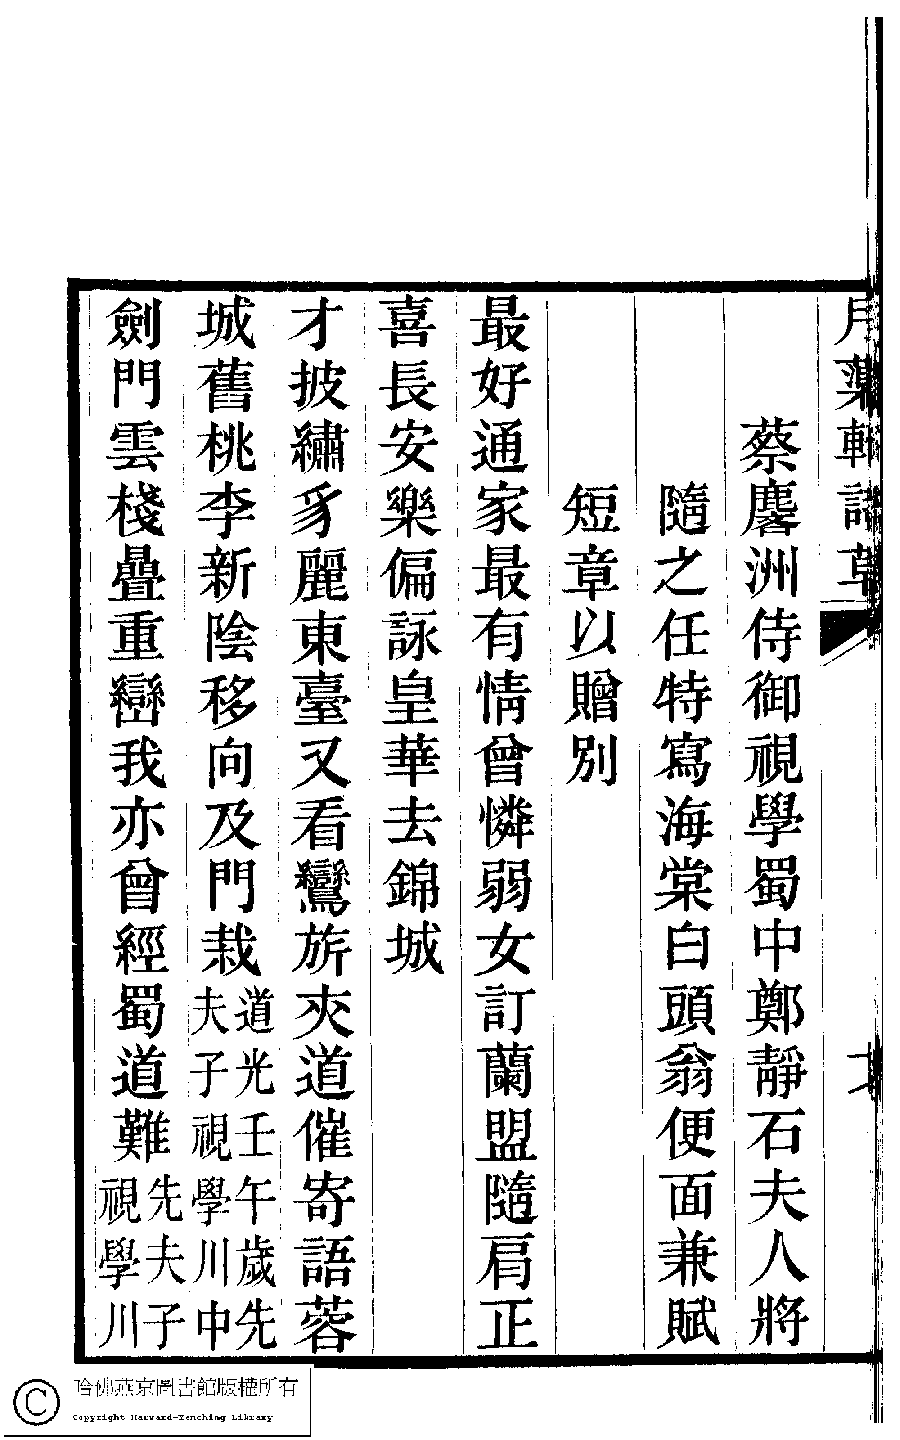 月蕖軒詩草
蔡麐洲侍御視學蜀中鄭靜石夫人將
隨之任特寫海棠白頭翁便面兼賦
短章以贈別
最好通家最有情曾憐弱女訂蘭盟隨肩正
喜長安樂偏詠皇華去錦城
才披繡豸麗東臺又看鸞旂夾道催寄語蓉
城舊桃李新陰移向及門栽道光壬午歲先
夫子視學川中
劍門雲棧疊重巒我亦曾經蜀道難先夫子
視學川
哈佛燕京圖書館版權所有
Copyright Harvard-Yenching Library